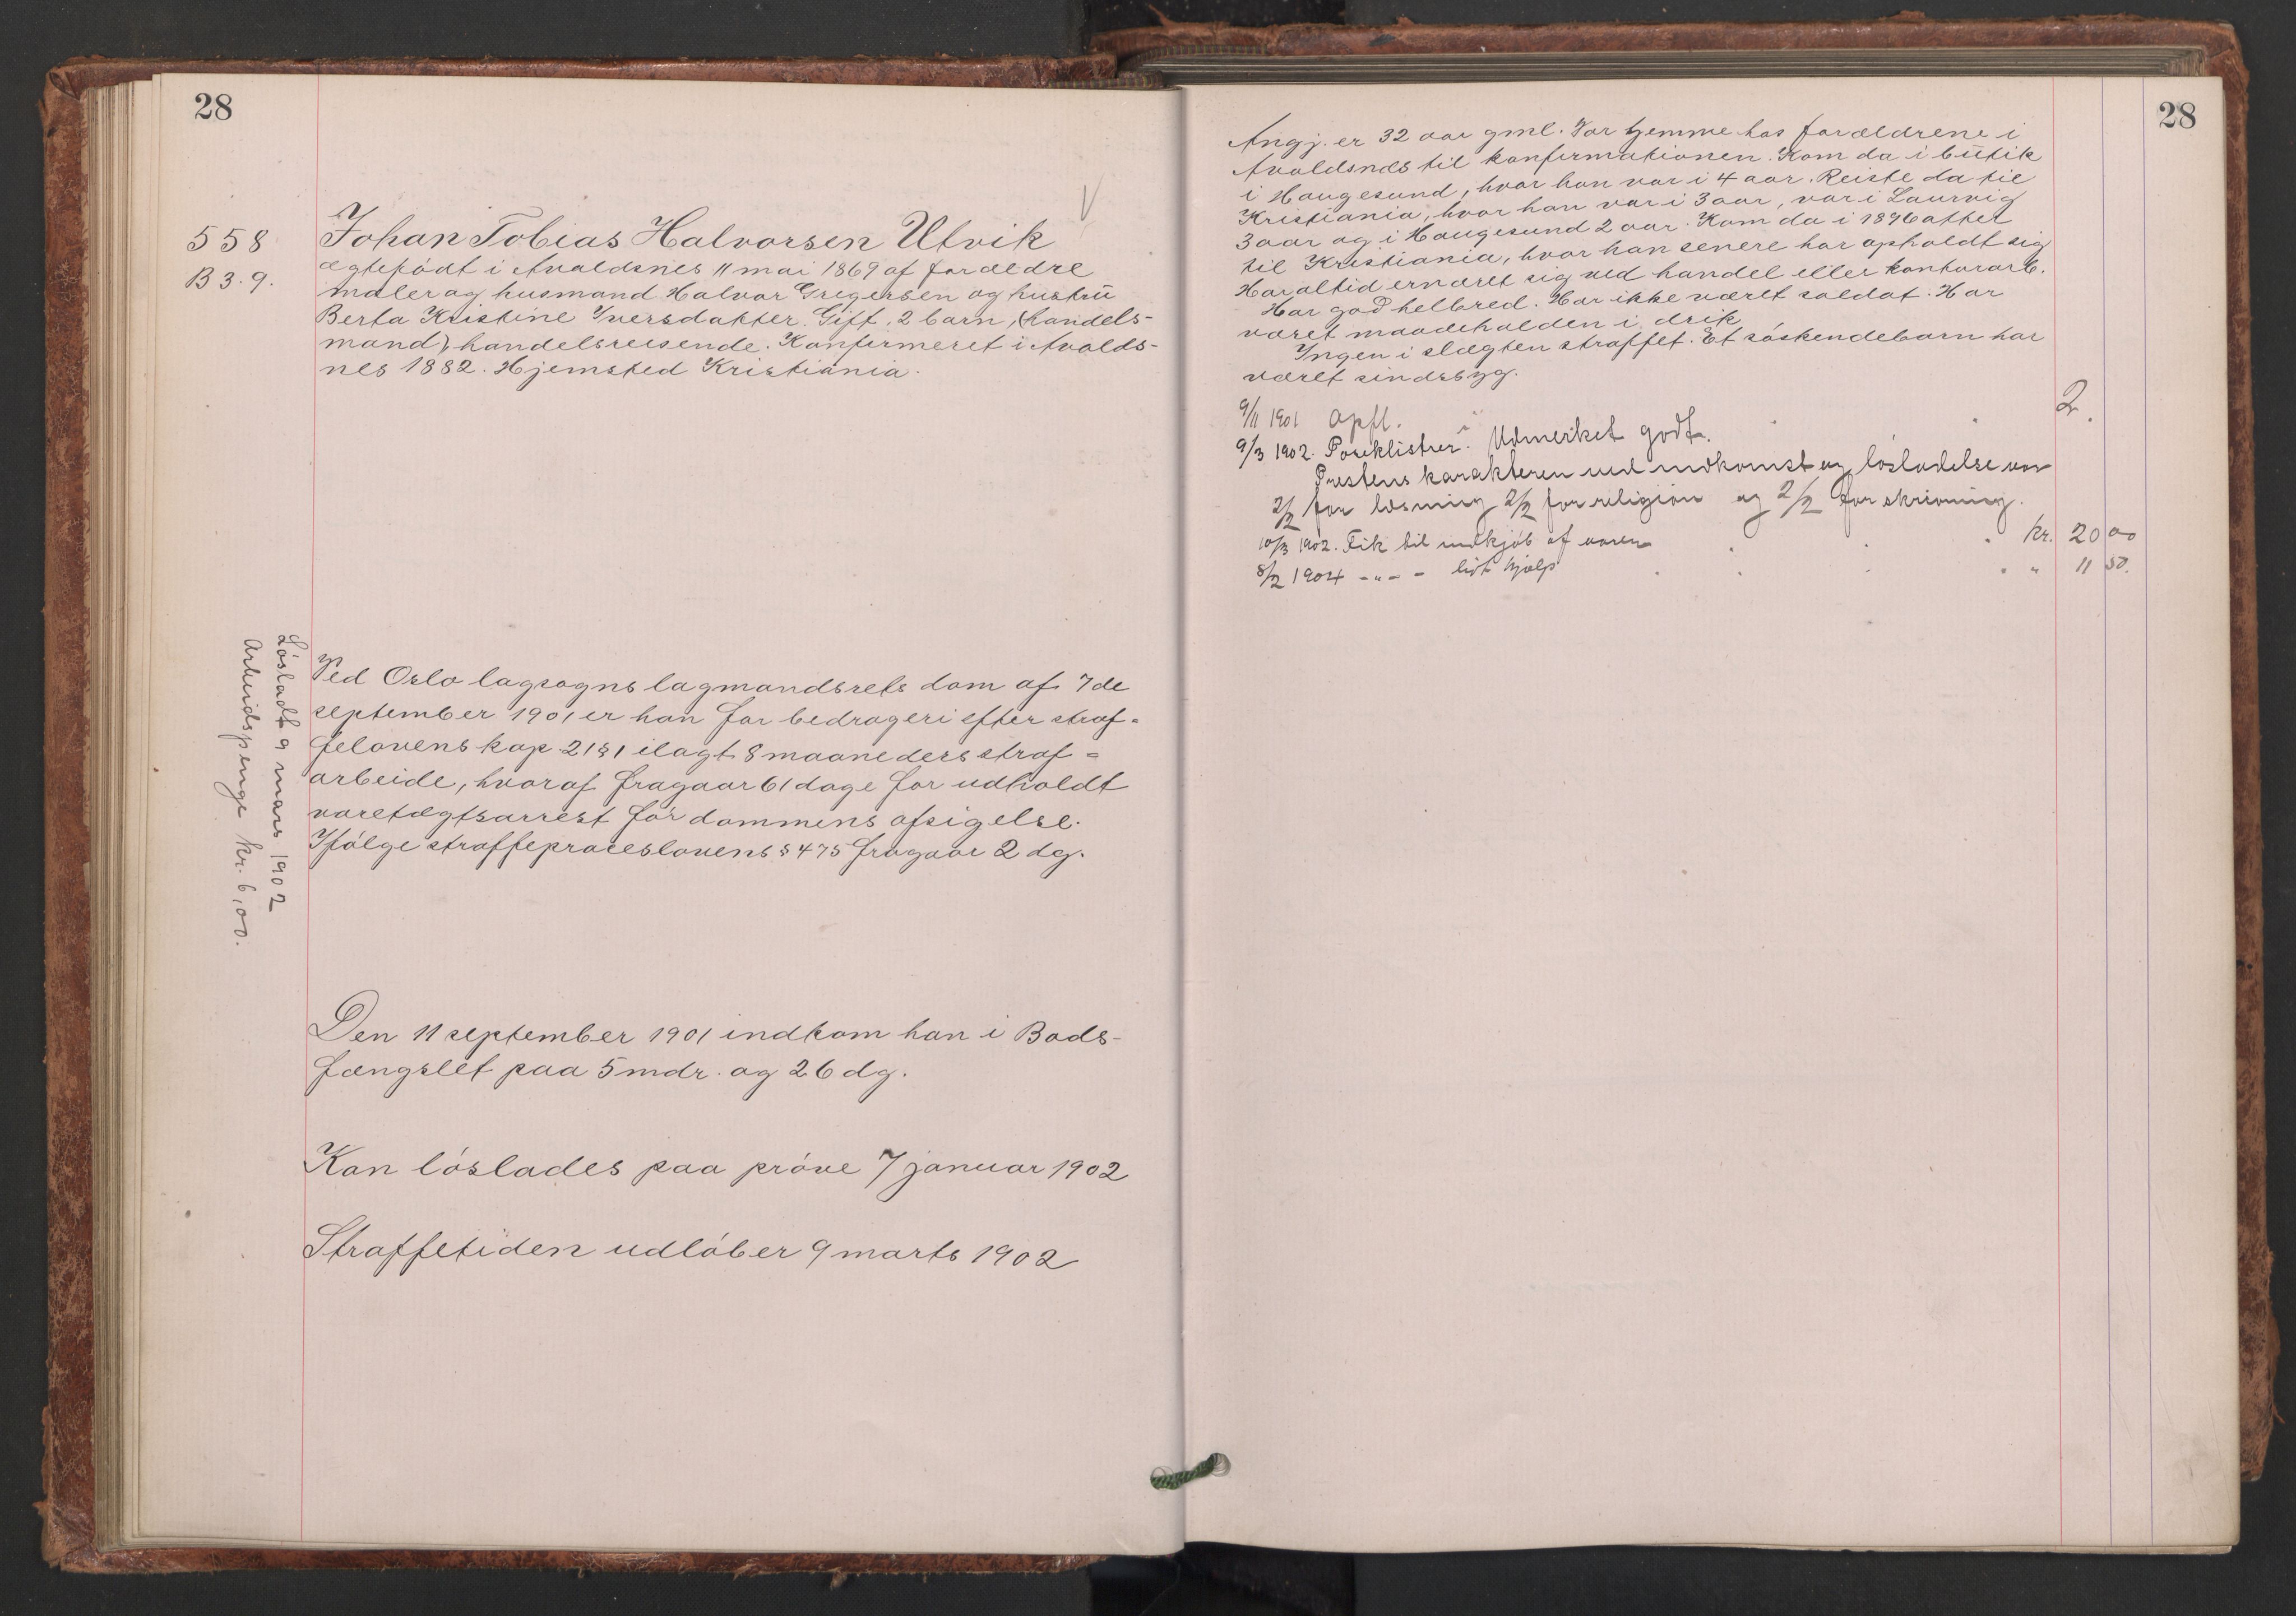 28
558
B 3. 9.
Johan Tobias Halvorsen Utvik
ægtefödt i Avaldsnes 11 mai 1869 af forældre
maler og husmand Halvor Gregersen og hustrü
Berta Kristine Iversdatter. Gift, 2 barn, (handels-
mand) handelsreisende. Konfirmeret i Avalds-
nes 1882. Hjemsted Kristiania.
Lösladt 9 mars 1902
Arbeidspenge kr. 6,00.
Ved Oslo lagsogns lagmandsrets dom af 7de
september 1901 er han for bedrageri efter straf-
felovens kap 21 § 1 ilagt 8 maaneders straf=
arbeide, hvoraf fragaar 61 dage for udholdt
varetægtsarrest för dommens afsigelse.
Ifölge straffeproceslovens § 475 fragaar 2 dg.
Den 11 september 1901 indkom han i Bods-
fængslet paa 5 mdr. og 26 dg.
Kan löslades paa pröve 7 januar 1902
Straffetiden udlöber 9 marts 1902
28
Angj. er 32 aar gml. Var hjemme hos forældrene i
Avaldsnes til konfirmationen. Kom da i bütik
i Haugesund, hvor han var i 4 aar. Reiste da til
Kristiania, hvor han var i 3 aar, var i Laurvig
3 aar og i Haugesund 2 aar. Kom da i 1896 atter
til Kristiania, hvor han senere har opholdt sig
Har altid ernæret sig ved handel eller kontorarb.
Har god helbred. Har ikke været soldat. Har
været maadeholden i drik
Ingen i slægten straffet. Et söskendebarn har
været sindssyg.
9/11 1901 Opfl. 2.
9/3 1902. Poseklistrer. Udmerket godt.
Prestens karakterer ved indkomst og lösladelse var
2/2 for læsning 2/2 for religion og 2/2 for skrivning.
10/3 1902. Fik til indkjöb af varer kr. 20 00
8/2 1904 -"- - lidt hjælp " 11 50.